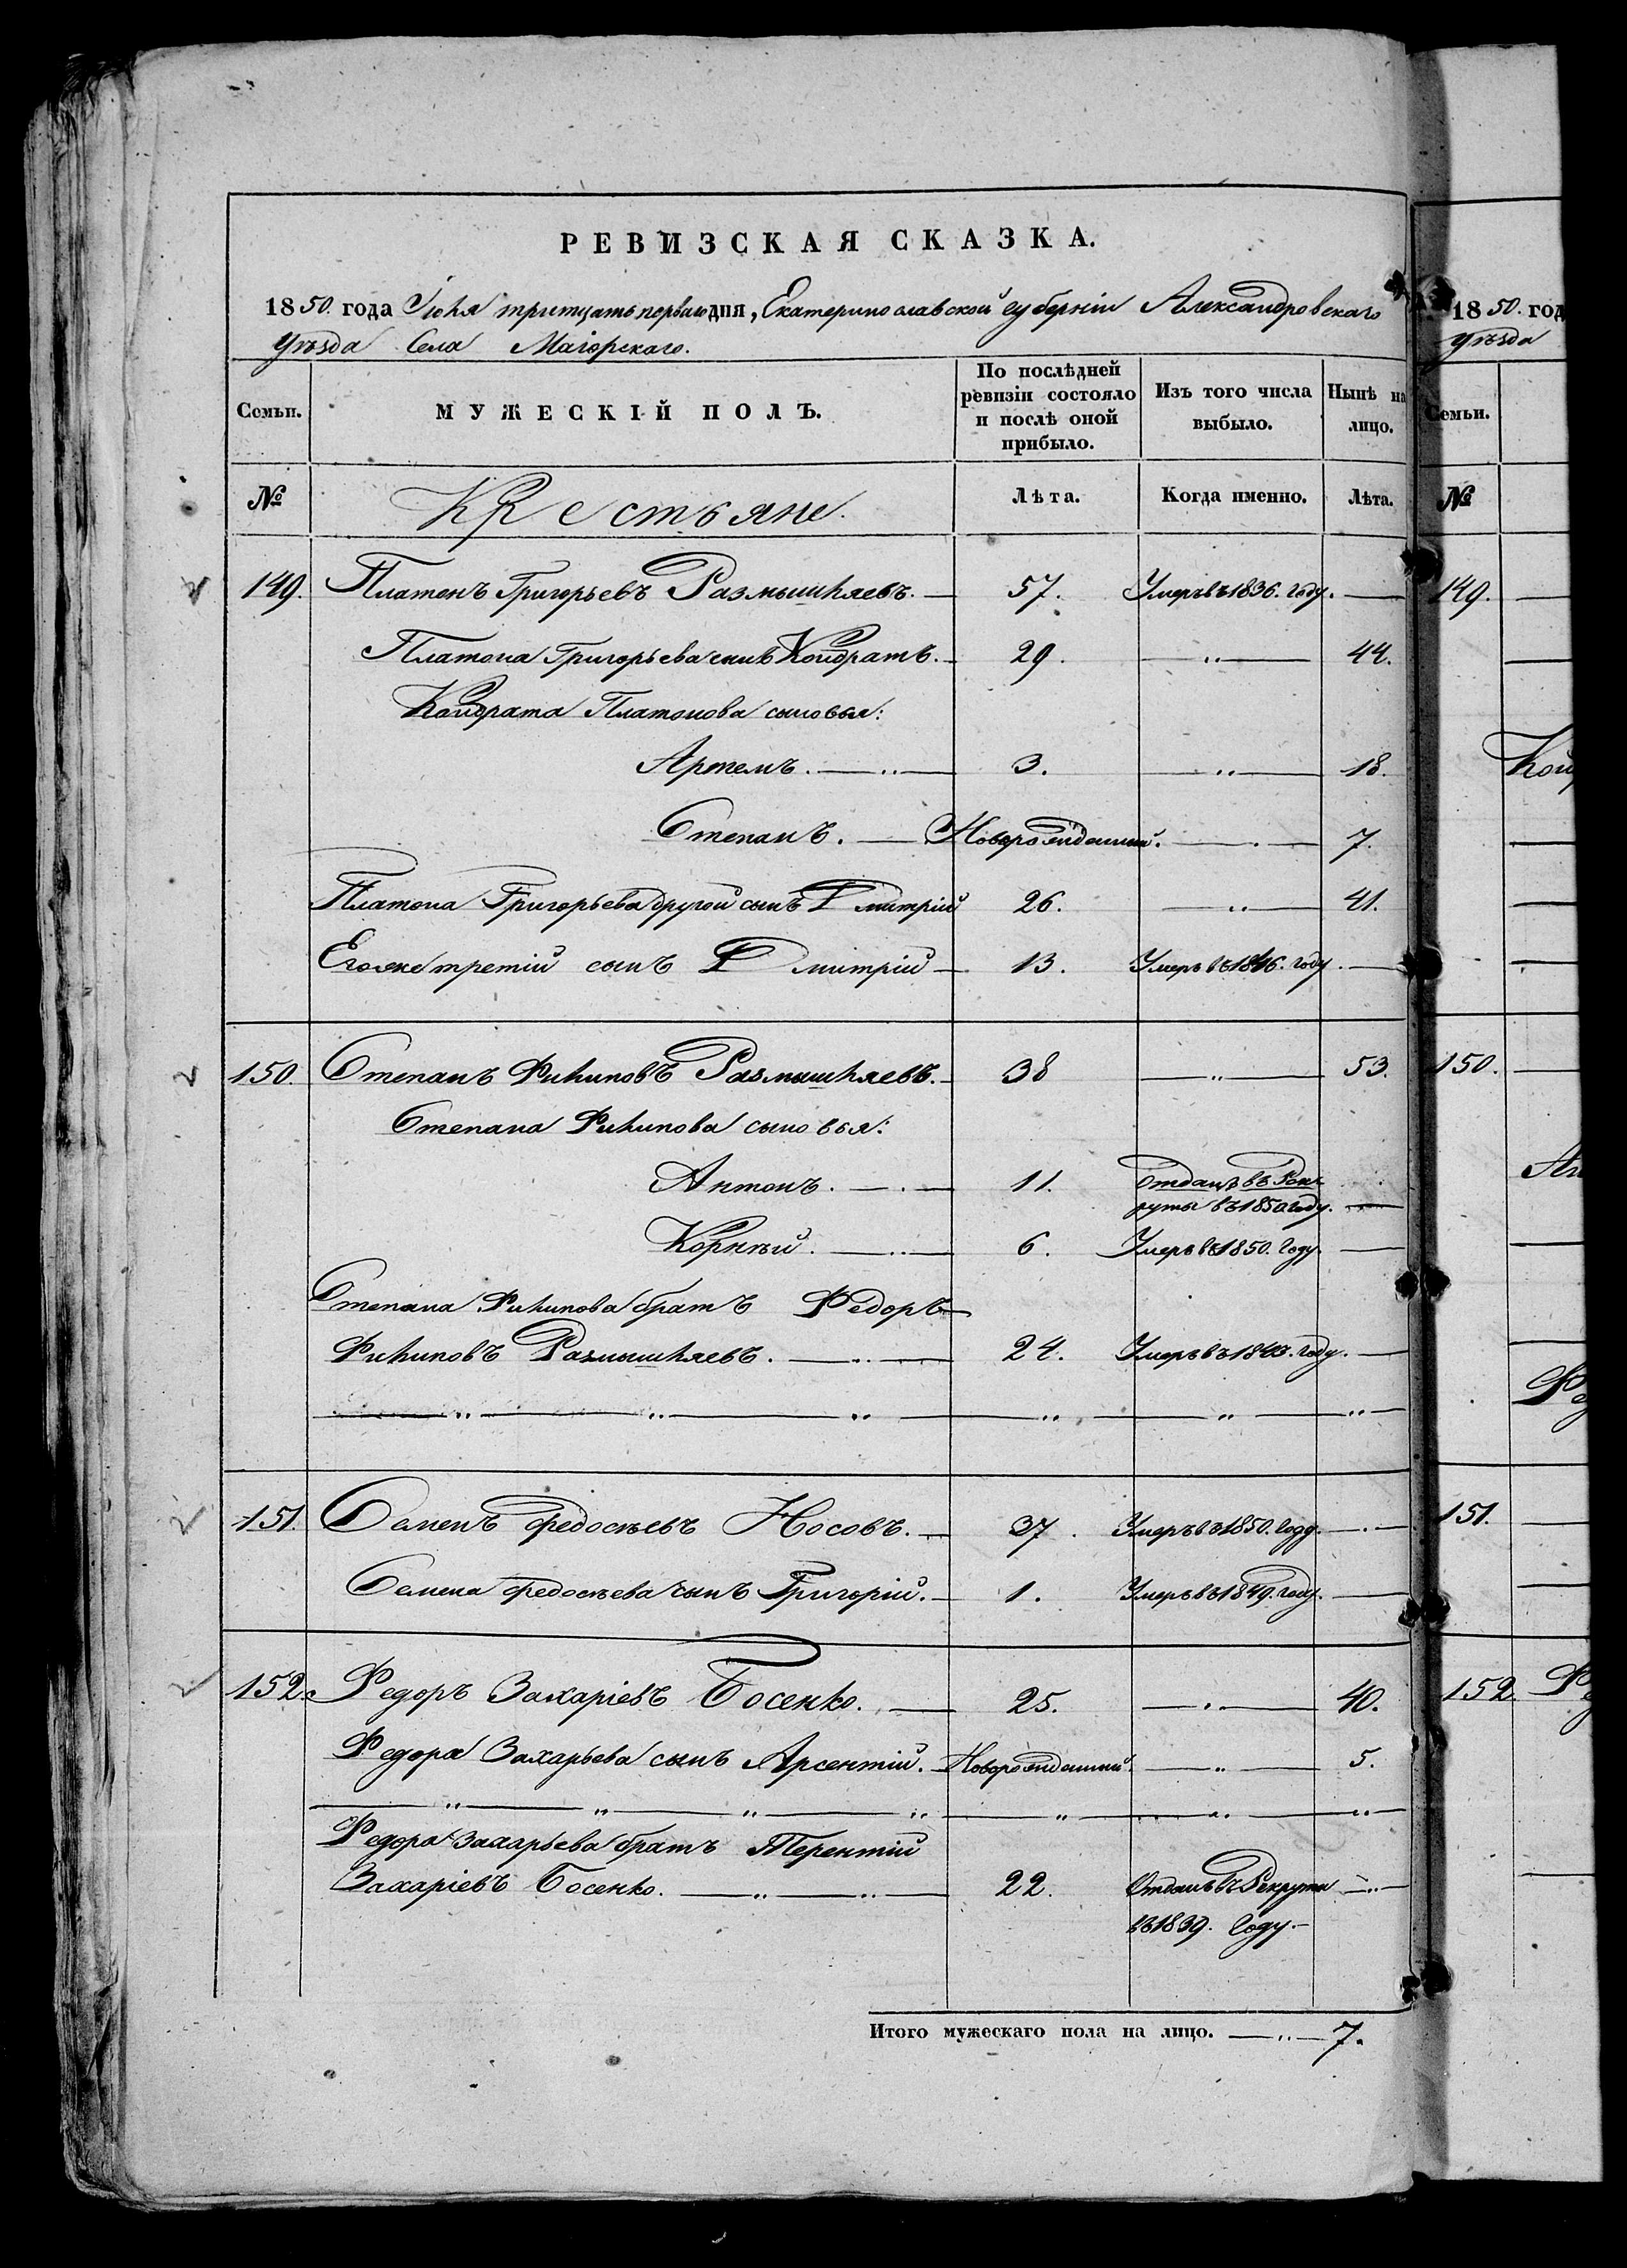 РЕВИЗСКАЯ СКАЗКА.
1850. года Іюля тритцать перваго дня, Екатеринославской губерніи Александровскаго
уѣзда Села Маіорскаго.
Семьи. МУЖЕСКІЙ ПОЛЪ. По послѣдней ревизіи состояло и послѣ оной прибыло. Изъ того числа выбыло. Нынѣ на лицо.
№ Крестьяне. Лѣта. Когда именно. Лѣта.
149. Платонъ Григорьевъ Размышляевъ. — 57. Умеръ въ 1836. году. —
Платона Григорьева сынъ Кондратъ. — 29. — „ — 44.
Кондрата Платонова сыновья:
Артемъ. — „ — 3. — „ — 18.
Степанъ. — Новорожденный. — . — 7.
Платона Григорьева другой сынъ Дмитрій 26. — „ — 41.
Егоже третій сынъ Дмитрій — 13. Умеръ въ 1846. году. —
150. Степанъ Филиповъ Размышляевъ. — 38 — „ — 53.
Степана Филипова сыновья:
Антонъ. — . — 11. Отданъ въ Рек-
руты въ 1850 году. —
Корнѣй. — „ — 6. Умеръ въ 1850. году. —
Степана Филипова братъ Федоръ —
Филиповъ Размышляевъ. — „ — 24. Умеръ въ 1843. году. —
— „ — „ — „ — „ — „ — „ —
151. Семенъ Федосѣевъ Носовъ. — 37. Умеръ въ 1850. году. — . —
Семена Федосѣева сынъ Григорій. — 1. Умеръ въ 1849. году. —
152. Федоръ Захаріевъ Босенко. — 25. — „ — 40.
Федора Захарьева сынъ Арсентій. — Новорожденный. — „ — 5.
— „ — „ — „ — „ — „ — „ — „ —
Федора Захарьева братъ Терентій
Захаріевъ Босенко. — „ — „ — 22. Отданъ въ Рекруты — „ —
въ 1839. году. —
Итого мужескаго пола на лицо. — „ — 7.
1850. год
уѣзда
Семьи.
№
149. —
150. —
151. —
152.